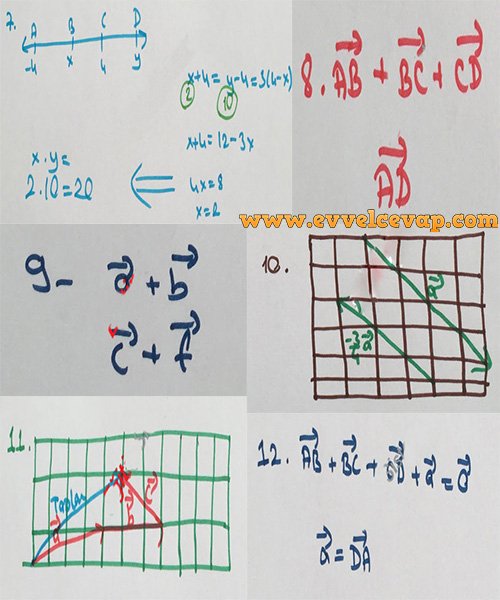 7.
A B C D
-4 x 4 y
x+4 = y-4 = 3(4-x)
2 10
x+4 = 12-3x
4x=8
x=2
x.y=
2.10=20
8. AB + BC + CD
AD
www.evvelcevap.com
9- a + b
c + f
10.
a
-3/4 a
11.
Toplam
a b c
12. AB + BC + CD + a = 0
a = DA